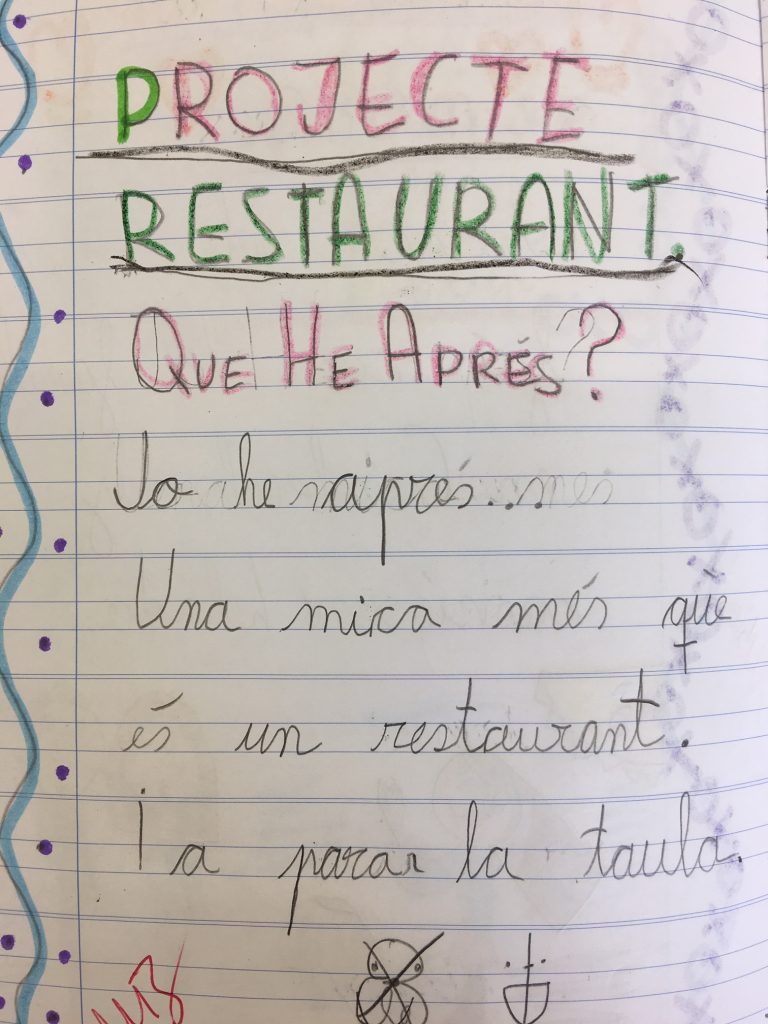 PROJECTE
RESTAURANT.
QUE HE APRÉS?
Jo he aprés...
Una mica més què
és un restaurant.
I a parar la taula.